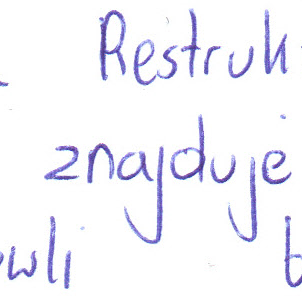 Restruk
znajduje
wli b